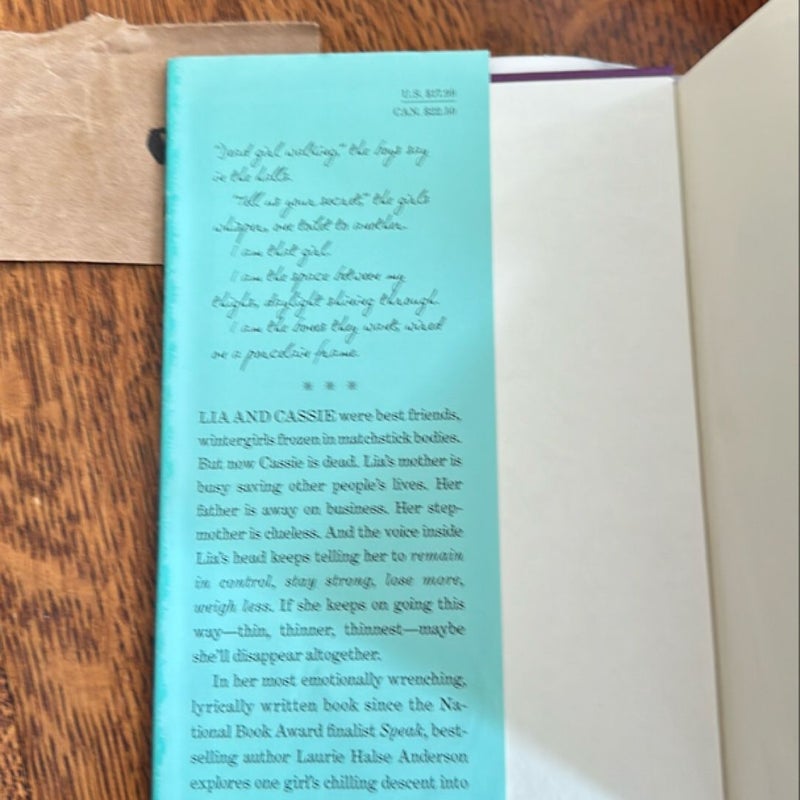 U.S. $17.99
CAN. $22.50
"Dead girl walking," the boys say
in the halls.
"Tell us your secret," the girls
whisper, one toilet to another.
I am that girl.
I am the space between my
thighs, daylight shining through.
I am the bones they want, wired
on a porcelain frame.
* * *
LIA AND CASSIE were best friends,
wintergirls frozen in matchstick bodies.
But now Cassie is dead. Lia's mother is
busy saving other people's lives. Her
father is away on business. Her step-
mother is clueless. And the voice inside
Lia's head keeps telling her to remain
in control, stay strong, lose more,
weigh less. If she keeps on going this
way—thin, thinner, thinnest—maybe
she'll disappear altogether.
In her most emotionally wrenching,
lyrically written book since the Na-
tional Book Award finalist Speak, best-
selling author Laurie Halse Anderson
explores one girl's chilling descent into